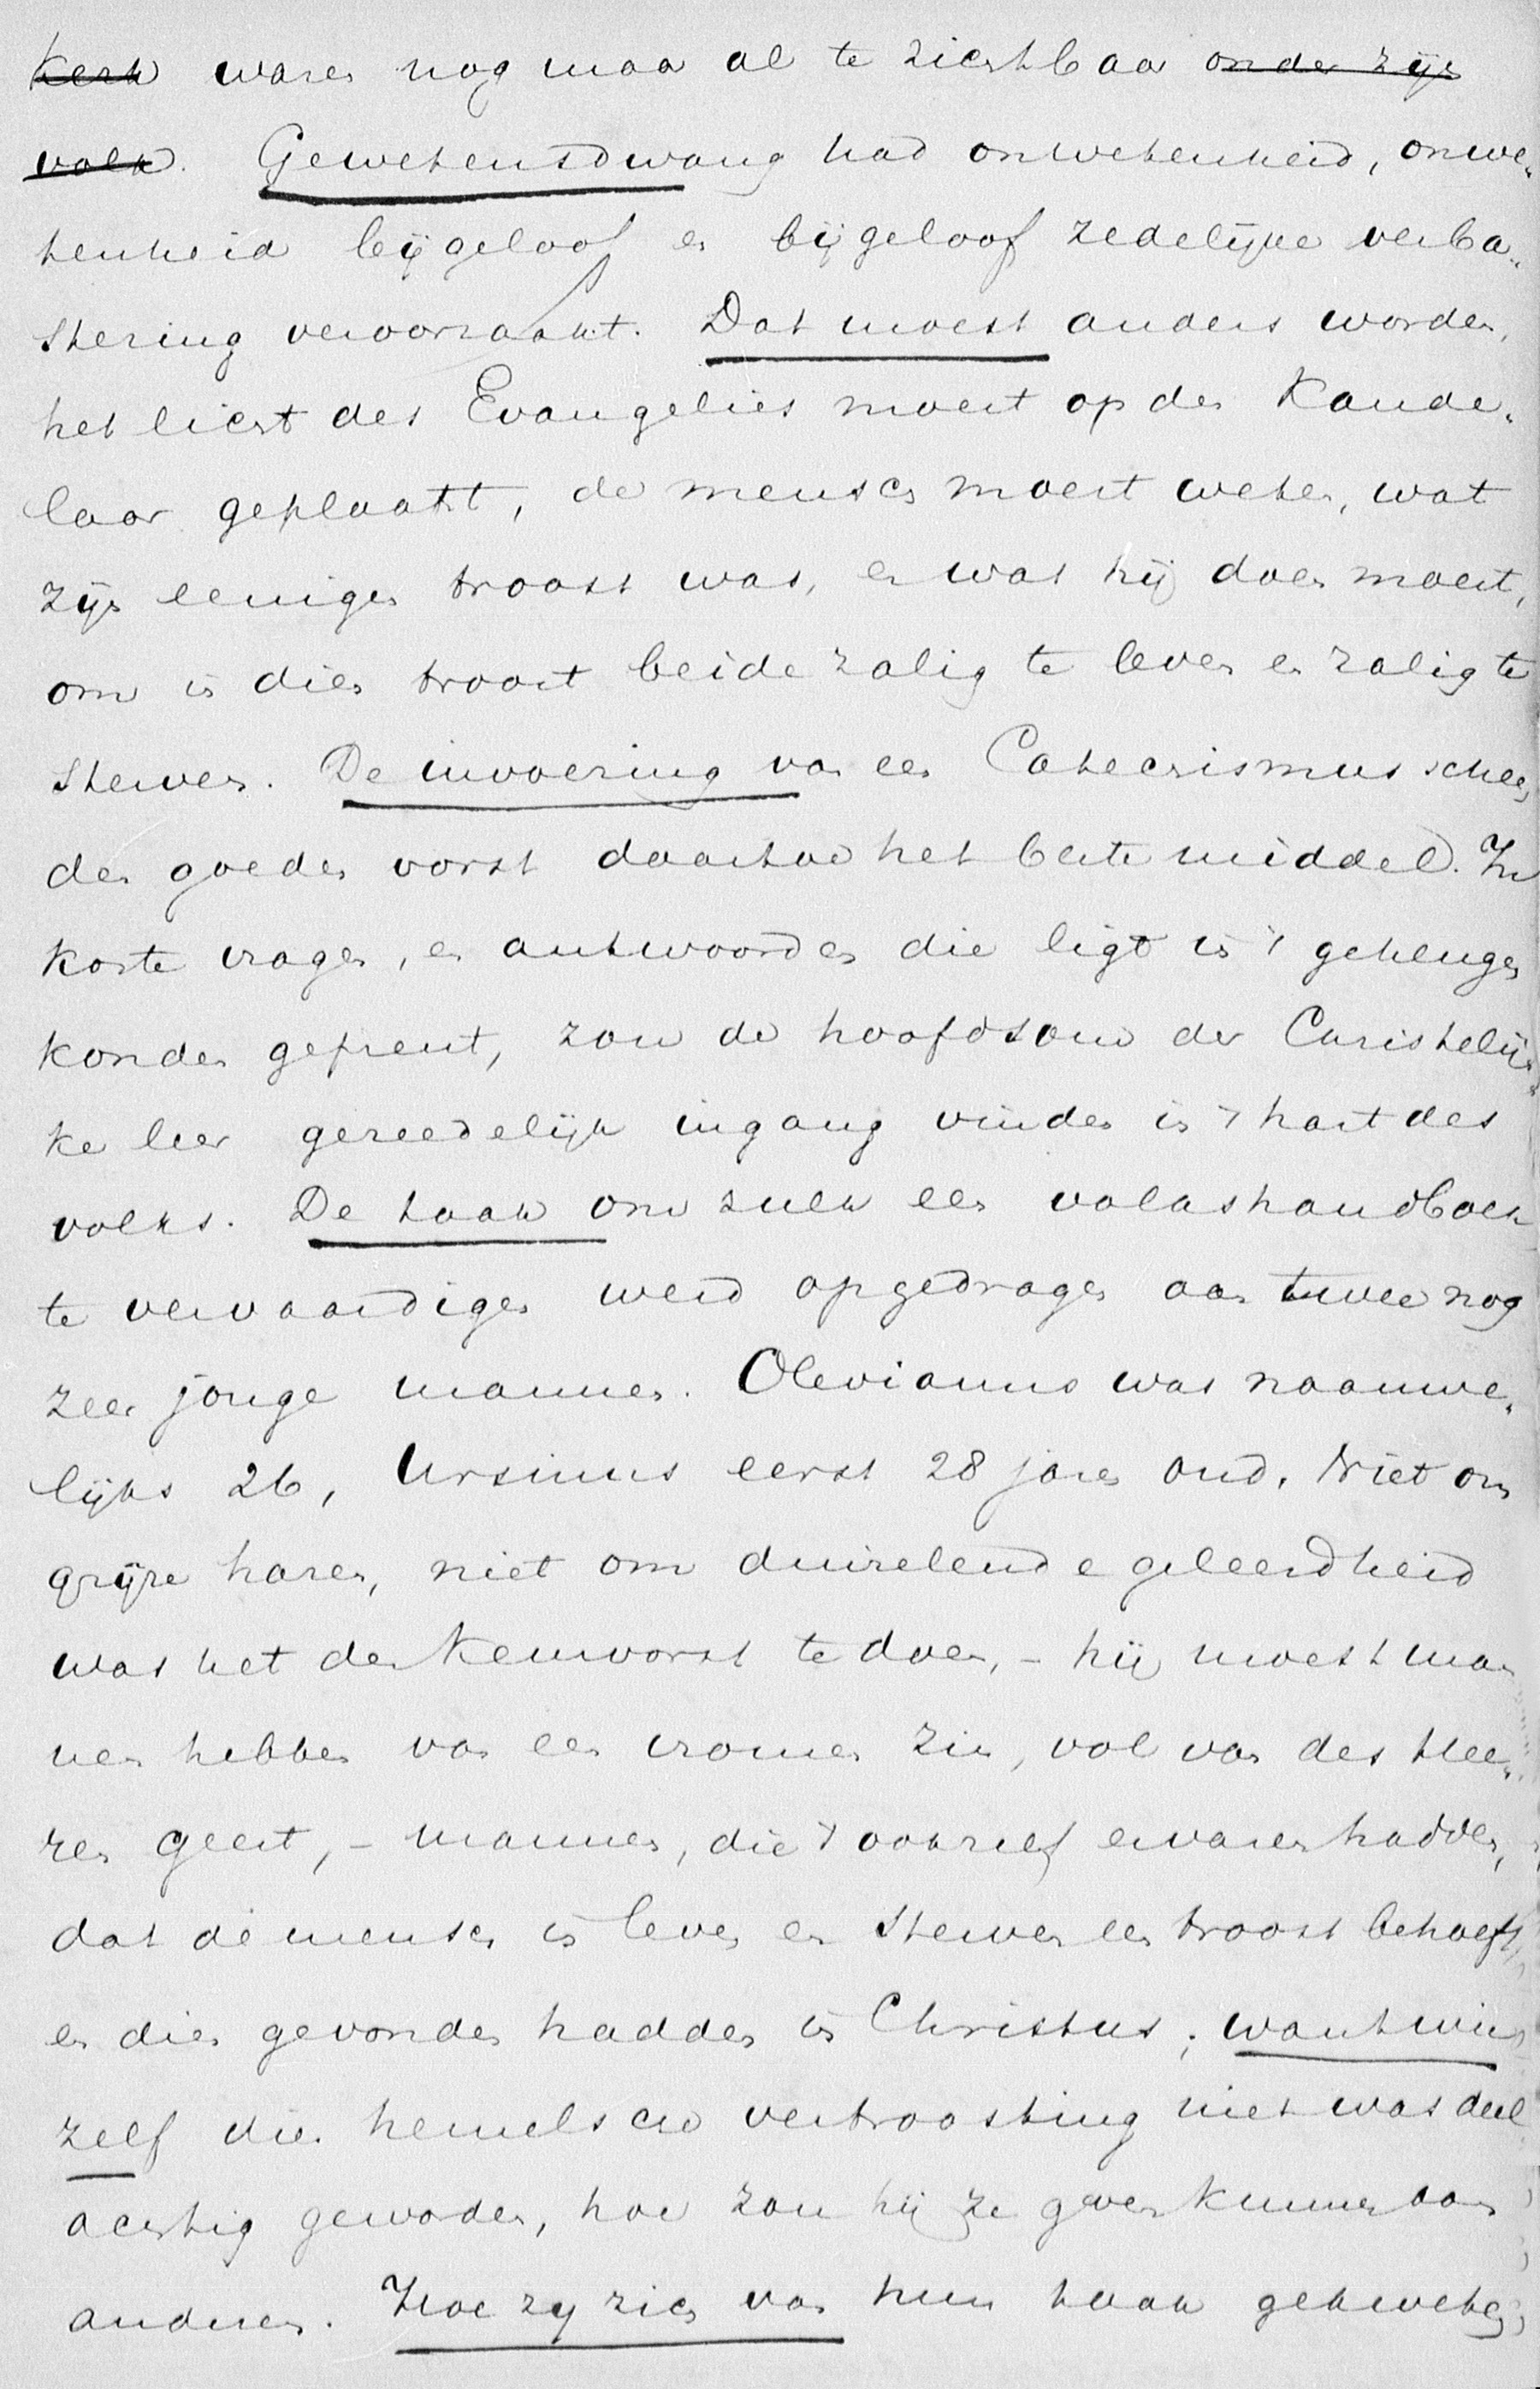 kerk waren nog maar al te zichtbaar onder zijn
volk. Gewetensdwang had onwetenheid, onwe„
tenheid bijgeloof en bijgeloof zedelijke verba„
stering veroorzaakt. Dat moest anders worden,
het licht des Evangelies moest op den Kande„
laar geplaatst, de mensch moest weten, wat
zijn eenigen troost was, en wat hij doen moest,
om in dien troost beide zalig te leven en zalig te
sterven. De invoering van een Catechismus scheen
den goeden vorst daartoe het beste middel. In
korte vragen, en antwoorden die ligt in 't geheugen
konden geprent, zou de hoofdsom der Christelij„
ke leer gereedelijk ingang vinden in 't hart des
volks. De taak om zulk een volkshandboek
te vervaardigen werd opgedragen aan twee nog
zeer jonge mannen. Olevianus was naauwe„
lijks 26, Ursinus eerst 28 jaren oud. Niet om
grijze haren, niet om duizelende geleerdheid
was het den Keurvorst te doen, – hij moest man
nen hebben van een vromen zin, vol van des Hee„
ren geest, – mannen, die 't ook zelf ervaren hadden,
dat de mensch in leven en sterven een troost behoeft,
en dien gevonden hadden in Christus; want wie
zelf die hemelsche vertroosting niet was deel
achtig geworden, hoe zou hij ze geven kunnen aan
anderen. Hoe zij zich van hun taak gekweten